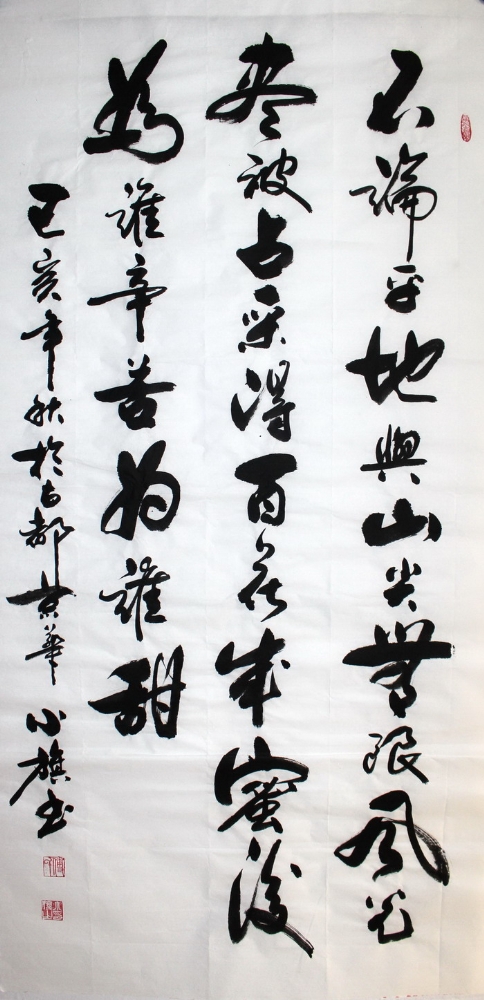 不論平地與山尖無限風光
盡被占采得百花成蜜後
為誰辛苦為誰甜
己亥年秋於古都京華 小旗书